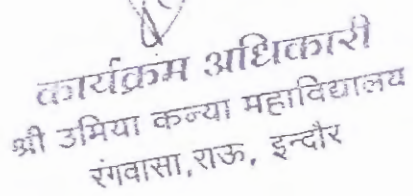 कार्यक्रम अधिकारी
श्री उमिया कन्या महाविद्यालय
रंगवासा,राऊ, इन्दौर